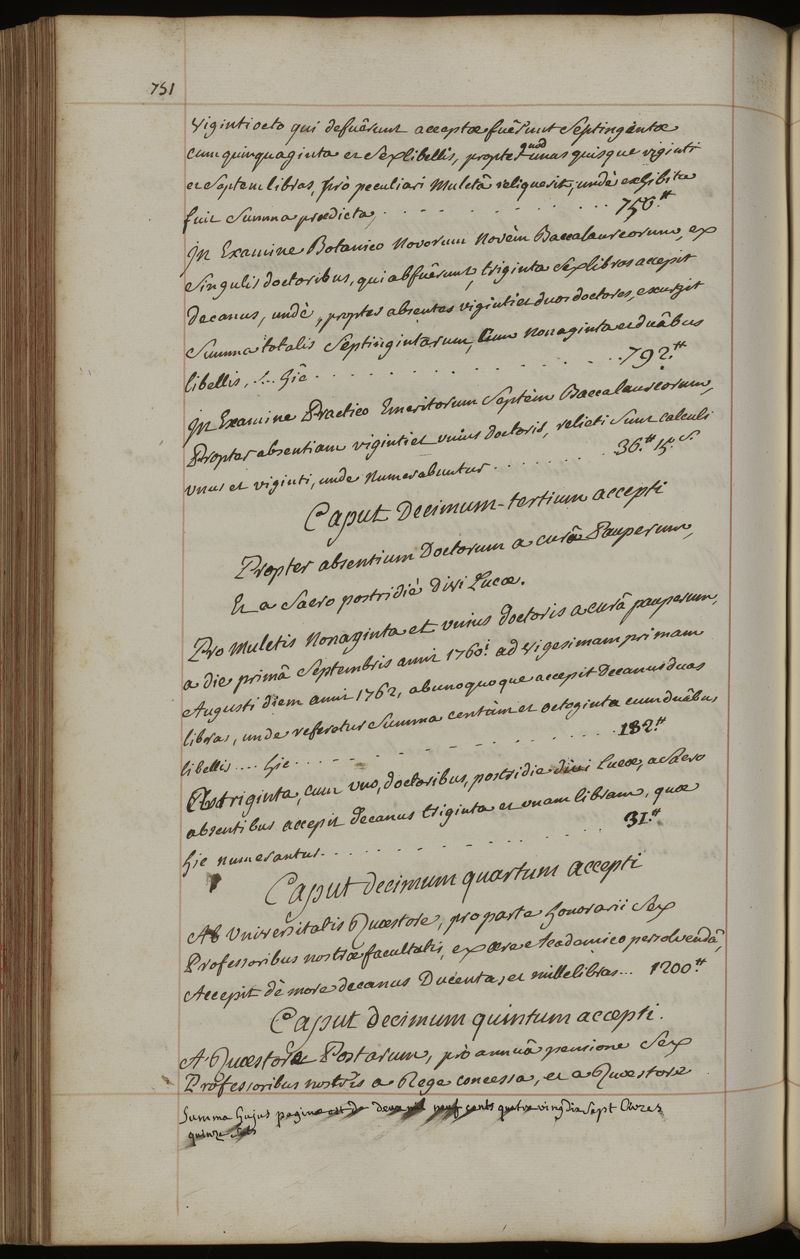 751
viginti octo qui defuêrunt acceptæ fuêrunt Septingentæ
cum quinquaginta et Sex libellis, propter quod unus quisque viginti
et Septem libras, prò peculiari Mulctâ reliquerit, undè exhibita
fuit Summa prædicta, . . . . . . . . 756.ᵗᵗ
In Examine Botanico Novorum Novèm Baccalaureorum, ex
Singulis doctoribus, qui abfuêrunt, triginta Sex libras accepit
decanus, undè, propter absentes viginti et duos doctores, exurgit
Summa totalis Septingintarum, Cum Nonaginta et duâbus
libellis, ... hîc . . . . . . . . 792.ᵗᵗ
In Examine Practico Emeritorum Septèm Baccalaureorum,
Propter absentiam viginti et unius doctoris, relicti Sunt calculi
unus et viginti, unde Numerabuntur . . . . . . 36.ᵗᵗ 15.ˢ
Caput Decimum-tertium accepti
Propter absentium Doctorum a curâ Pauperum,
Et a Sacro postridiè Divi Lucæ.
Pro Mulctis Nonaginta et unius doctoris a curâ pauperum,
a die primâ Septembris anni 1760.ⁱ ad vigesimam primam
Augusti diem anni 1762, ab unoquoque accepit Decanus duas
libras, unde referatur Summa centùm et octoginta cum duâbus
libellis .... hîc . . . . . . . . 182.ᵗᵗ
A triginta, cum uno, doctoribus, postridie divi Lucæ, a Sacro
absentibus accepit decanus triginta et unam libram, quæ
hîc numerantur . . . . . . . . 31.ᵗᵗ
Caput decimum quartum accepti
Ab Universitatis Quæstore, pro parte honorarii Sex
Professoribus nostræ facultatis, ex ære Academico persolvendâ,
Accepit dè more decanus Ducentas, et mille libras... 1200.ᵗᵗ
Caput decimum quintum accepti.
A Quæstore Postarum, prò annuâ pensione Sex
Professoribus nostris a Rege concessa, et a Quæstore
Summa hujus paginæ est de deux mil neuf cents quatre vingt dix Sept livres
quinze Sols